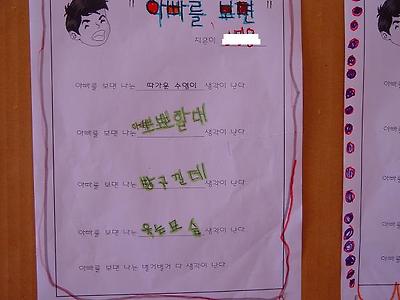 " 아빠를 보면 "
지은이
아빠를 보면 나는 따가운 수염이 생각이 난다.
아빠를 보면 나는 뽀뽀할대 생각이 난다.
아빠를 보면 나는 방구낄데 생각이 난다.
아빠를 보면 나는 웃는모습 생각이 난다.
아빠를 보면 나는 다 생각이 난다.